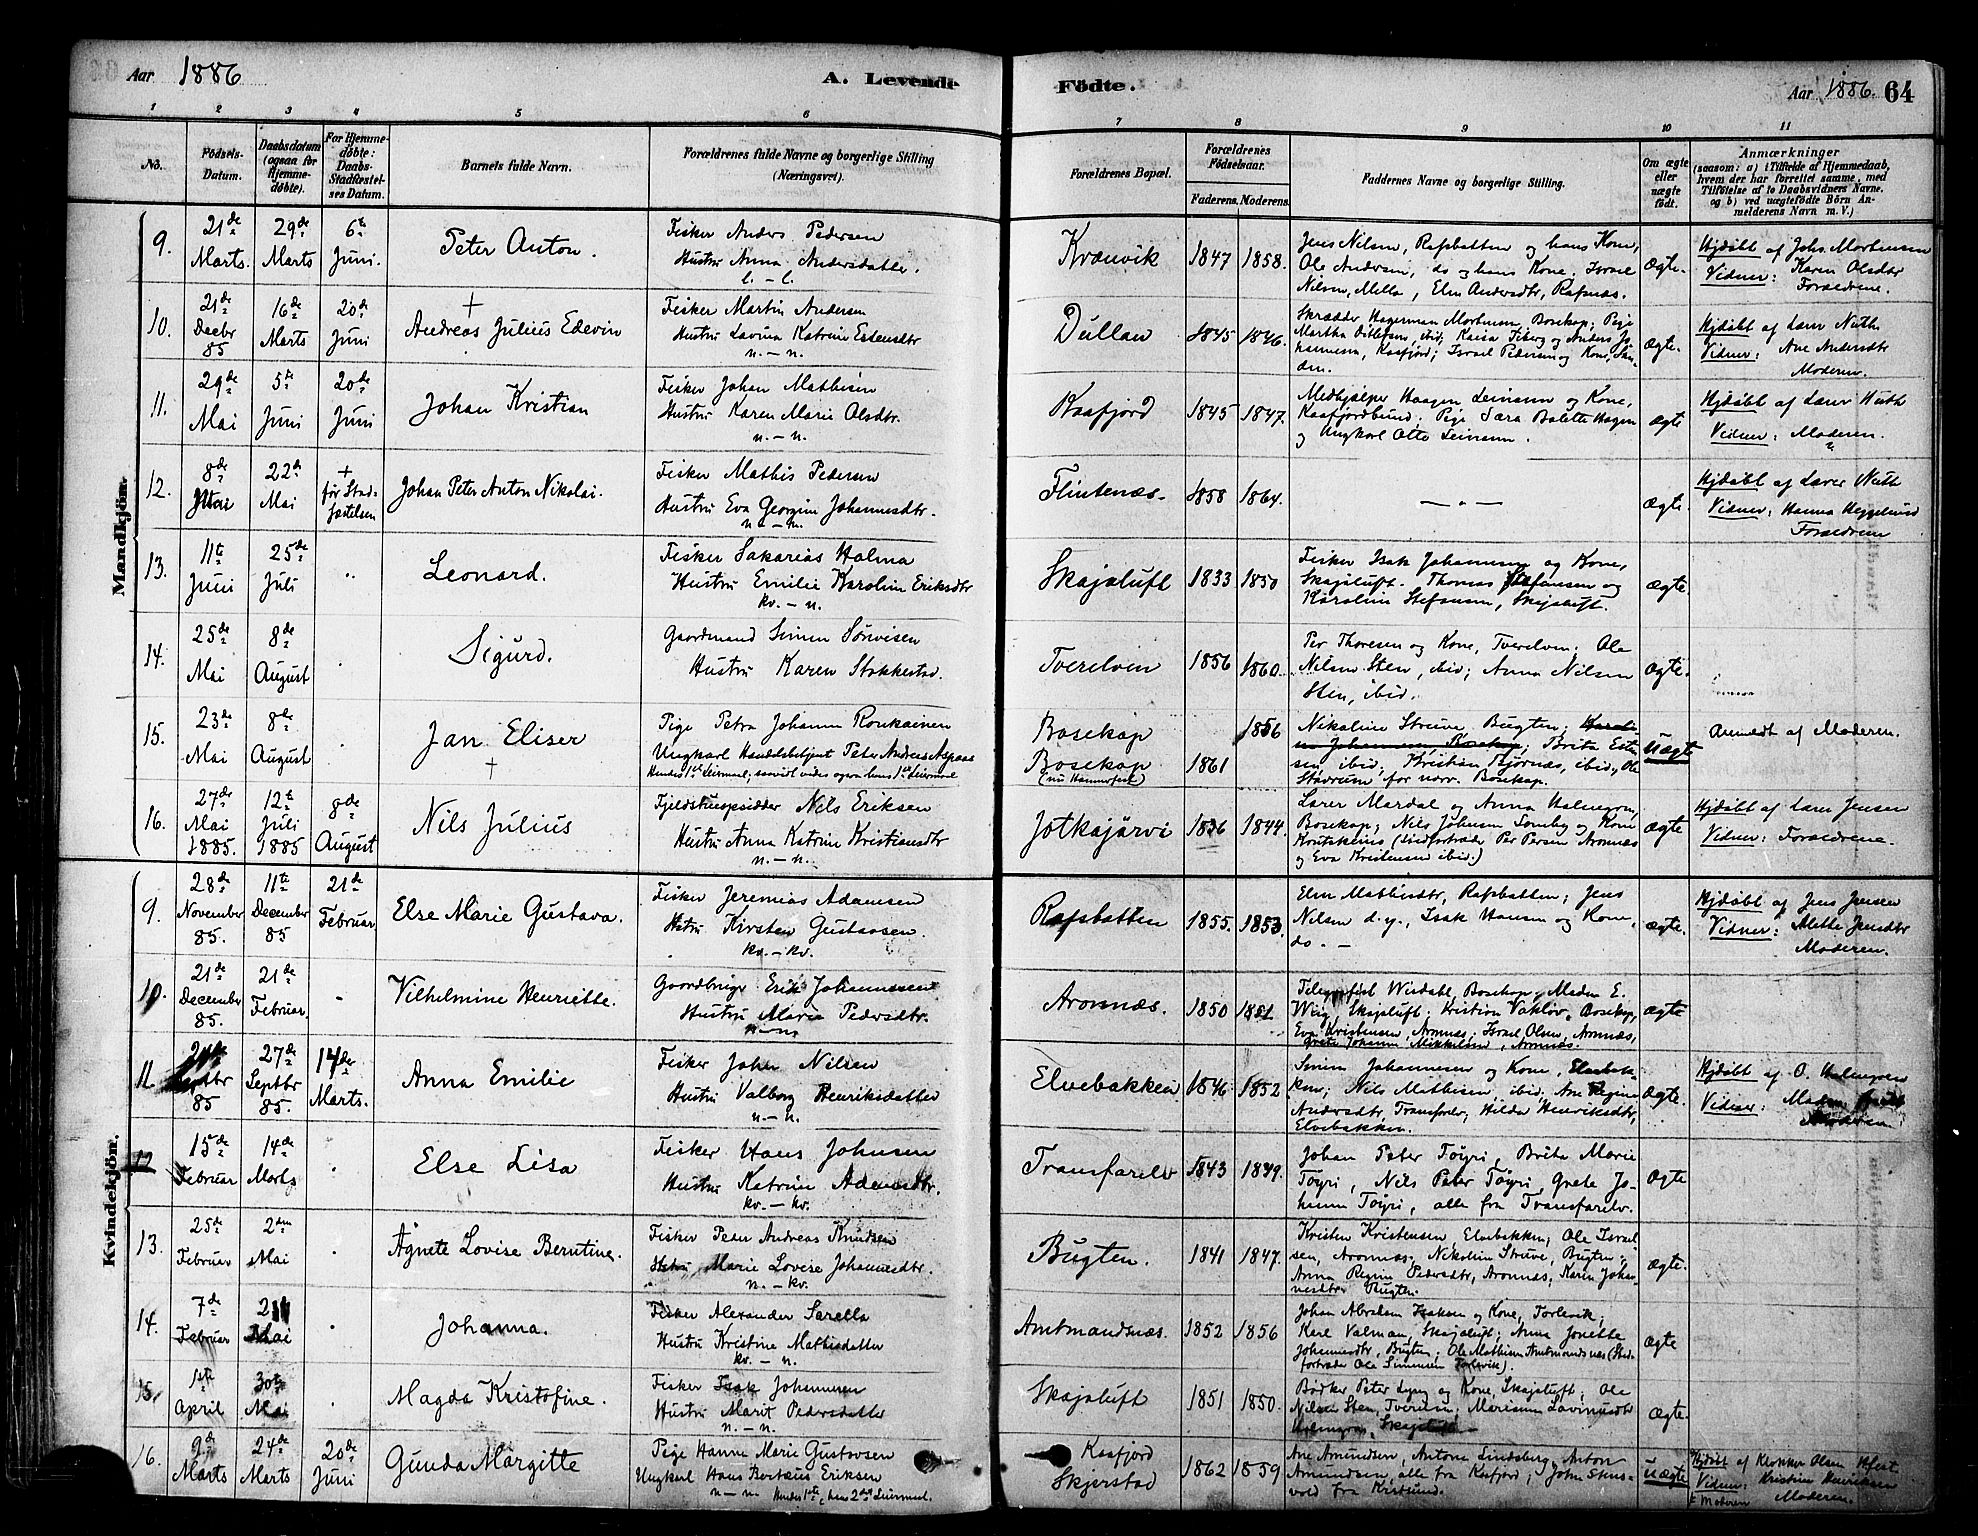 Aar 1886
A. Levende Födte.
Aar 1886. 64
1 2 3 4 5 6 7 8 9 10 11
No. Födsels-Datum. Daabsdatum (ogsaa for Hjemmedöbte). For Hjemmedöbte: Daabs-Stadfæstelses Datum. Barnets fulde Navn. Forældrenes fulde Navne og borgerlige Stilling (Næringsvei). Forældrenes Bopæl. Forældrenes Födselsaar. Faderens. Moderens. Faddernes Navne og borgerlige Stilling. Om ægte eller uægte födt. Anmærkninger (saasom: a) i Tilfælde af Hjemmedaab, hvem der har forrettet samme, med Tilföielse af to Daabsvidners Navne, og b) ved uægtefödte Börn Anmelderens Navn m. V.)
Mandkjön.
9. 21de Marts. 29de Marts 6te Juni. Peter Anton. Fisker Anders Pedersen Hustru Anna Andersdatter. l. - l. Kvænvik 1847 1858. Jens Nilsen, Rafsbotten og hans Kone, Ole Andersen, do og hans Kone, Israel Nilsen, Mella, Elen Andersdtr, Rafsnæs. ægte. Hjdøbt af Johs. Mortensen Vidner: Karen Olsdtr Forældrene.
10. 21de Decbr 85 16de Marts 20de Juni + Andreas Julius Edevin Fisker Martin Andersen Hustru Lavina Katrine Estensdtr n. - n. Dullau 1845 1846. Skrædder Hagerman Mortensen, Bosekop; Pige Martha Ditlefsen, ibid; Kaisa Friberg og Anders Johannesen, Kaafjord; Israel Pedersen og Kone, Sanden. ægte. Hjdøbt af Lærer Nuth Vidner: Ane Andersdtr Moderen.
11. 29de Mai 5te Juni 20de Juni Johan Kristian Fisker Johan Mathisen Hustru Karen Marie Olsdtr. n. - n. Kaafjord 1845 1847. Medhjælper Haagen Leinan og Kone, Kaafjordbund; Pige Sara Bolette Hagen og Ungkarl Otto Leinan. ægte Hjdøbt af Lærer Nuth Vidner: Moderen.
12. 8de Mai 22de Mai + før Stadfæstelsen Johan Peter Anton Nikolai. Fisker Mathis Pedersen Hustru Eva Georgine Johannesdtr. n. - n. Flintenæs. 1858 1864. — " — ægte. Hjdøbt af Lærer Nuth Vidner: Hanna Heggelund Forældrene
13. 11te Juni 25de Juli " Leonard. Fisker Sakarias Halma Hustru Emilie Karoline Eriksdtr kv. - n. Skajaluft 1833 1850 Fisker Isak Johannesen og Kone, Skajaluft. Thomas Stefansen og Karoline Stefansen, Skajaluft. ægte.
14. 25de Mai 8de August . Sigurd. Gaardmand Simen Sörvisen Hustru Karen Stokkestad. Tverelven 1856 1860. Per Thoresen og Kone, Tverelven; Ole Nilsen Sten, ibid; Anna Nilsen Sten, ibid. ægte.
15. 23de Mai 8de August . Jan Eliser + Pige Petra Johanna Ronkainen Ungkarl Handelsbetjent Peter Andreas Aspaas Hendes 1ste Leiermaal; saavidt vides ogsaa hans 1ste Leiermaal Bosekop Bosekop (nu Hammerfest) 1861 1856 Nikoline Struve, Bugten; Karoline Johannesen, Bosekop; Brita Estensen, ibid; Kristian Bjørnæs, ibid, Ole Stavrum for nærv. Bosekop. uægte Anmeldt af Moderen.
16. 27de Mai 1885. 12te Juli 1885 8de August Nils Julius Fjeldstueopsidder Nils Eriksen Hustru Anna Katrine Kristiansdtr n. - n. Jotkajärvi 1836 1844. Lærer Mardal og Anna Halmgren, Bosekop; Nils Johnsen Somby og Kone Koutokeino (stedfortræder Per Persen Aronnæs og Eva Kristensen ibid.) ægte Hjdøbt af Lærer Jensen Vidner: Forældrene.
Kvindekjön.
9. 28de November 85. 11te December 85 21de Februar Else Marie Gustava. Fisker Jeremias Adamsen Hustru Kirsten Gustavsen. kv. - kv. Rafsbotten 1855. 1853. Elen Mathisdtr, Rafsbotten; Jens Nilsen d.y., Isak Hansen og Kone, do. — ægte. Hjdøbt af Jens Jensen Vidner: Mette Jensdtr Moderen.
10. 21de December 85. 21de Februar. - Vilhelmine Henriette. Gaardbruger Erik Johannessen Hustru Maria Pedersdtr. n - n Aronnæs. 1850 1851. Telegrafist Wisdahl, Bosekop; Madam E. Wiig, Skajaluft; Kristian Vakløv, Bosekop, Eva Kristensen, Aronnæs; Israel Olsen, Aronnæs, Grete Johanna Mikkelsen, Aronnæs. ægte
11. Septbr 85 27de Septbr 85. 14der Marts. Anna Emilie Fisker Johan Nilsen Hustru Valborg Henriksdatter n - n. Elvebakken 1846 1852 Simon Johannesen og Kone, Elvebakken; Nils Mathisen, ibid, Ane Regine Andersdtr, Transfarelv; Hilda Henriksdtr, Elvebakken. ægte. Hjdøbt af O. Halmgren Vidner: Madam Moderen.
12 15de Februar 14de Marts . Else Lisa Fisker Hans Johnsen Hustru Katrine Adamsdtr. kv. - kv. Transfarelv 1843 1849. Johan Peter Töyri, Brita Marie Töyri, Nils Peter Töyri, Grete Johanna Töyri, alle fra Transfarelv. ægte
13. 25de Februar 2den Mai . Agnete Lovise Berntine. Fisker Peder Andreas Knudsen Hustru Marie Lovise Johannesdtr. n. - kv. Bugten. 1841 1847. Kristen Kristensen Elvebakken; Ole Israelsen, Aronnæs, Nikoline Struve, Bugten; Anna Regine Pedersdtr, Aronnæs, Karen Johannesdtr Bugten. ægte.
14. 7de Februar Mai . Johanna. Fisker Alexander Sarella Hustru Kristine Mathisdatter kv. - n. Amtmandsnæs. 1852 1856 Johan Abraham Isaksen og Kone, Torlevik; Karl Valman, Skajaluft; Anna Jonette Johannesdtr, Bugten; Ole Mathisen Amtmandsnæs (Stedfortræder Ole Simensen Torlevik). ægte
15. 1ste April 30te Mai . Magda Kristofine. Fisker Isak Johannesen Hustru Marit Pedersdatter n. - n. Skajaluft 1851 1850. Bødker Peter Lyng og Kone, Skajaluft; Ole Nilsen Sten, Tverelven; Mariane Lavinusdtr Halmgren, Skajaluft ægte.
16. 9de Marts 24de Marts 20de Juni Gunda Margitte Pige Hanne Marie Gustavsen Ungkarl Hans Bertæus Eriksen n - n Hendes 1ste, hans 2det Leiermaal. Kaafjord Skjerstad 1862 1859 Ane Amundsen, Antone Lindsberg, Anton Amundsen, alle fra Kaafjord; John Stensvold fra Kristsund. uægte Hjdøbt af Klokker Olsen Vidner: Kristine Henriksen Moderen.